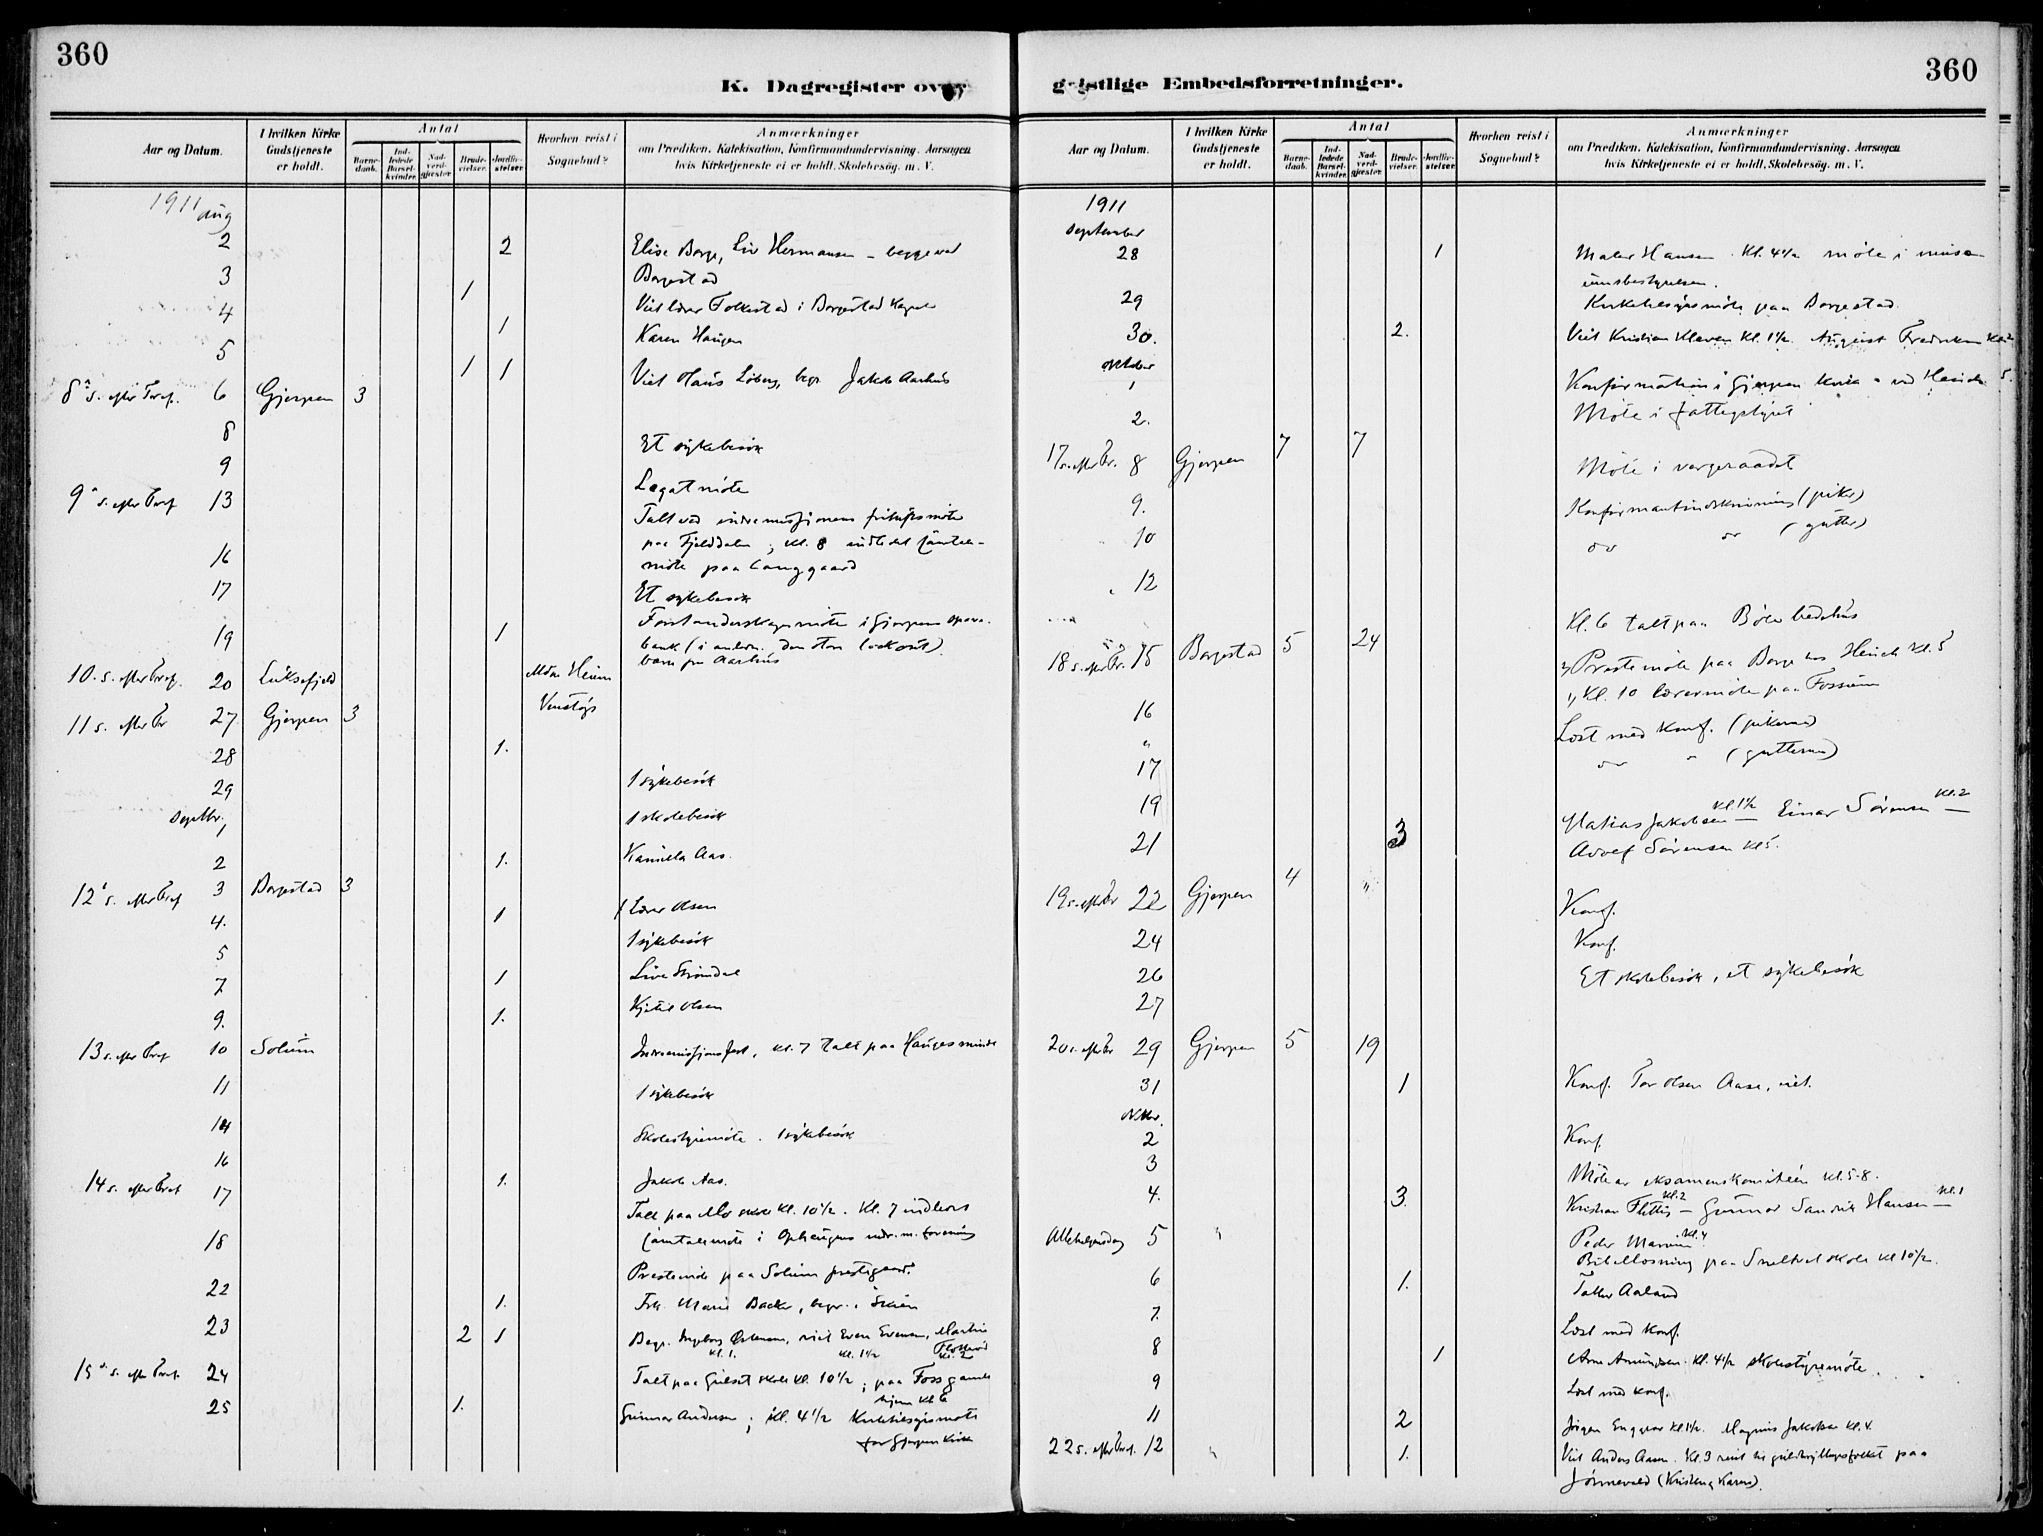 360
360
K. Dagregister over geistlige Embedsforretninger.
Aar og Datum.
I hvilken Kirke Gudstjeneste er holdt.
Antal
Barne-daab.
Ind-ledede Barsel-kvinder.
Nad-verd-gjæster.
Brude-vielser.
Jordfæ-stelser.
Hvorhen reist i Sognebud?
Anmærkninger
om Prædiken, Katekisation, Konfirmandundervisning. Aarsagen
hvis Kirketjeneste ei er holdt. Skolebesøg. m. V.
1911 aug
2 2 Elise Borge, Liv Hermansen - begge ved
3 Borgestad
4 1 Viet lærer Folkestad i Borgestad kapel
1 Karen Haugen
5 1 1 Viet Hans Loberg, begr. Jakob Aarhus
8de s. efter Tref. 6 Gjerpen 3
8 Et sykebesök
9 Legatmöte
9de s. efter Tref 13 Talt ved indremissjonens friluftsmöte
paa Fjelddalen; kl. 8 indledet samtale-
möte paa Langgaard
16 Et sykebesök
17 Forstanderskapsmöte i Gjerpens spare-
19 1 bank (i anledn. den store )
barn fra Aarhus
10. s. efter Tref. 20 Luksefjeld
Venstøp
11 s. efter Tr 27 Gjerpen 3
28 1.
29 1 sykebesök
Septbr. 1 1 skolebesök
2 1. Kamilla Aas.
12te s. efter Tref 3 Borgestad 3
4. 1 Lærer Olsen
5 1 sykebesök
7 1 Live Strömdal
9. 1. Kjetil Olsen
13 s. efter Tref 10 Solum Indremissjonsfest, kl. 7 talt paa Hauges minde
11 1 sykebesök
14 Skolestyremöte. 1 sykebesök
16 1. Jakob Aas.
14 s. efter Tref 17 Talt paa Mo skole kl. 10½. Kl. 7 indledet
samtalemöte i indr. m. forening
18 Prestemöte paa Solum prestegaard.
22 1. Frk. Marie Backe, begr. i Skien
23 2 1 Begr. Ingeborg Østensen, viet Even Evensen, Martin
kl. 1. kl. 1½ kl. 2
15de s. efter Tref. 24 Talt paa Gulset skole kl. 10½; paa Foss gamle
hjem kl. 6
25 1. Gunnar Andersen; kl. 4½ Kirketilsynsmöte
for Gjerpen Kirke
Aar og Datum.
I hvilken Kirke Gudstjeneste er holdt.
Antal
Barne-daab.
Ind-ledede Barsel-kvinder.
Nad-verd-gjæster.
Brude-vielser.
Jordfæ-stelser.
Hvorhen reist i Sognebud?
Anmærkninger
om Prædiken, Katekisation, Konfirmandundervisning. Aarsagen
hvis Kirketjeneste ei er holdt. Skolebesøg. m. V.
1911
September
28 1 Maler Hansen. Kl. 4½ möte i muse-
umsbestyrelsen.
29 Kirketilsynsmöte paa Borgestad.
30. 2. Viet Kristian Kleven kl. 1½. August Fredriksen kl. 2
Oktober
1 Konfirmation i Gjerpen kirke
2. Möte i fattigstyret
17 s. efter Tr. 8 Gjerpen 7 7 Möte i vergeraadet
9. Konfirmantindskrivning (piker)
10 do do (gutter)
12 Kl. 6 talt paa Böle bedehus
18 s. efter Tr. 15 Borgestad 5 24 Prestemöte paa Borge hos Heuch kl. 5
Kl. 10 lærermöte paa Fossum
16 Læst med konf. (pikerne)
17 do " (gutterne)
19
21 3 Matias Jakobsen kl. 1½ — Einar Sörensen kl. 2 —
Adolf Sörensen kl 5.
19 s. efter Tr 22 Gjerpen 4 "
Konf.
24 Konf.
26 Et skolebesök, et sykebesök
27
20 s. efter Tr 29 Gjerpen 5 19
31 1 Konf. Tor Olsen Aase, viet.
Novbr.
2 Konf.
3 Möte av eksamenskomitéen kl. 5-8.
4. 3. Kristian Flittig kl. 2 — Gunnar Sandvik Hansen kl. 1 —
Allehelgensdag 5 " Peder kl. 4
Bibellæsning paa skole kl 10½.
6 1. Aaland
7. Læst med konf.
8 1 Arne Amundsen. Kl. 4½ skolestyremöte.
9 Læst med konf.
11 2 Jörgen kl 1½. Magnus Jakobsen kl. 4
22 s. efter Tref. 12 " 1. Viet Anders Aasen. Kl. 3 guldbryllupsfolket paa
(Kristen og Karen).